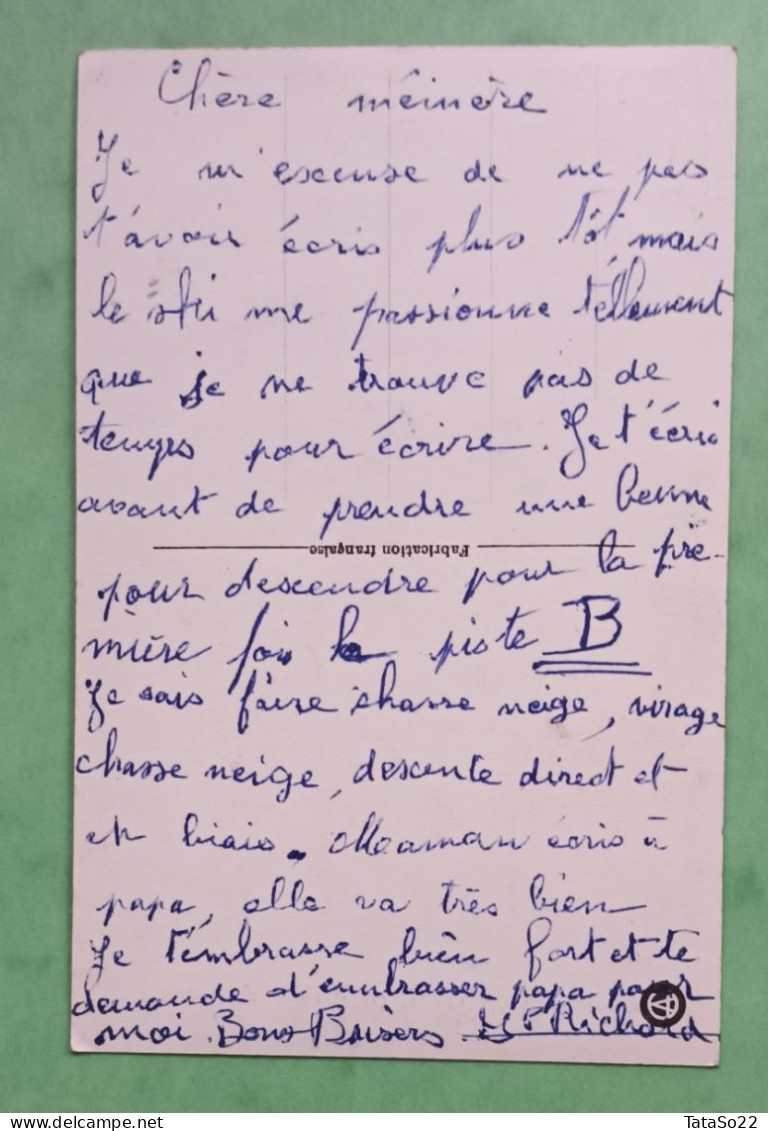 Chère mémère
Je m'excuse de ne pas
t'avoir écris plus tôt mais
le ski me passionne tellement
que je ne trouve pas de
temps pour écrire. Je t'écris
avant de prendre une benne
Fabrication française
pour descendre pour la pre-
mière fois la piste B
Je sais faire chasse neige, virage
chasse neige, descente direct et
en biais. Maman écris à
papa, elle va très bien
Je t'embrasse bien fort et te
demande d'embrasser papa pour
moi. Bons Baisers Richard
TataSo22